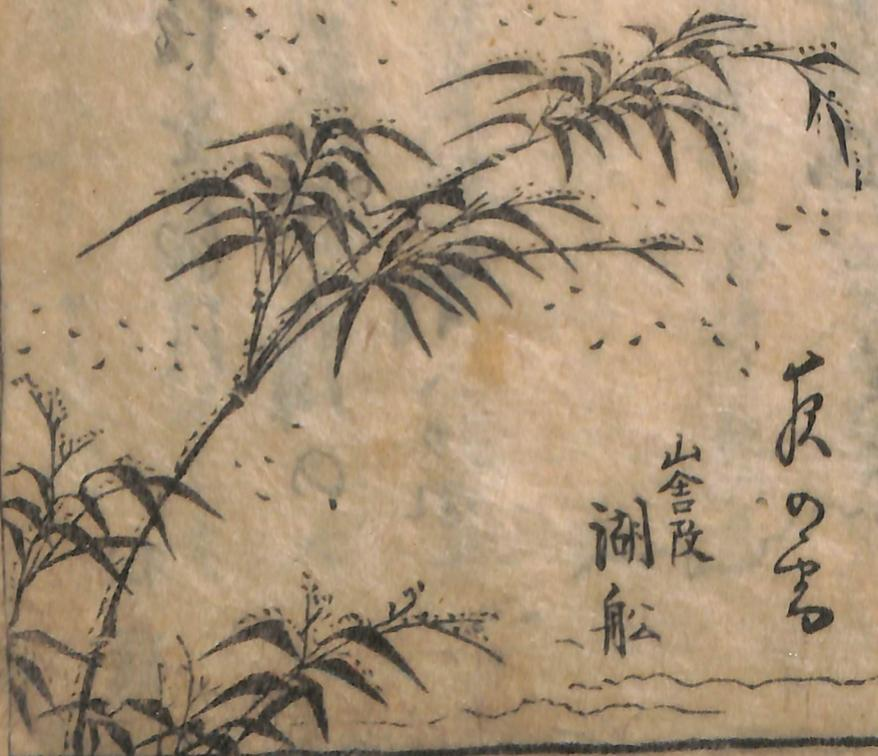 夜の雪
山舎改
湖舩